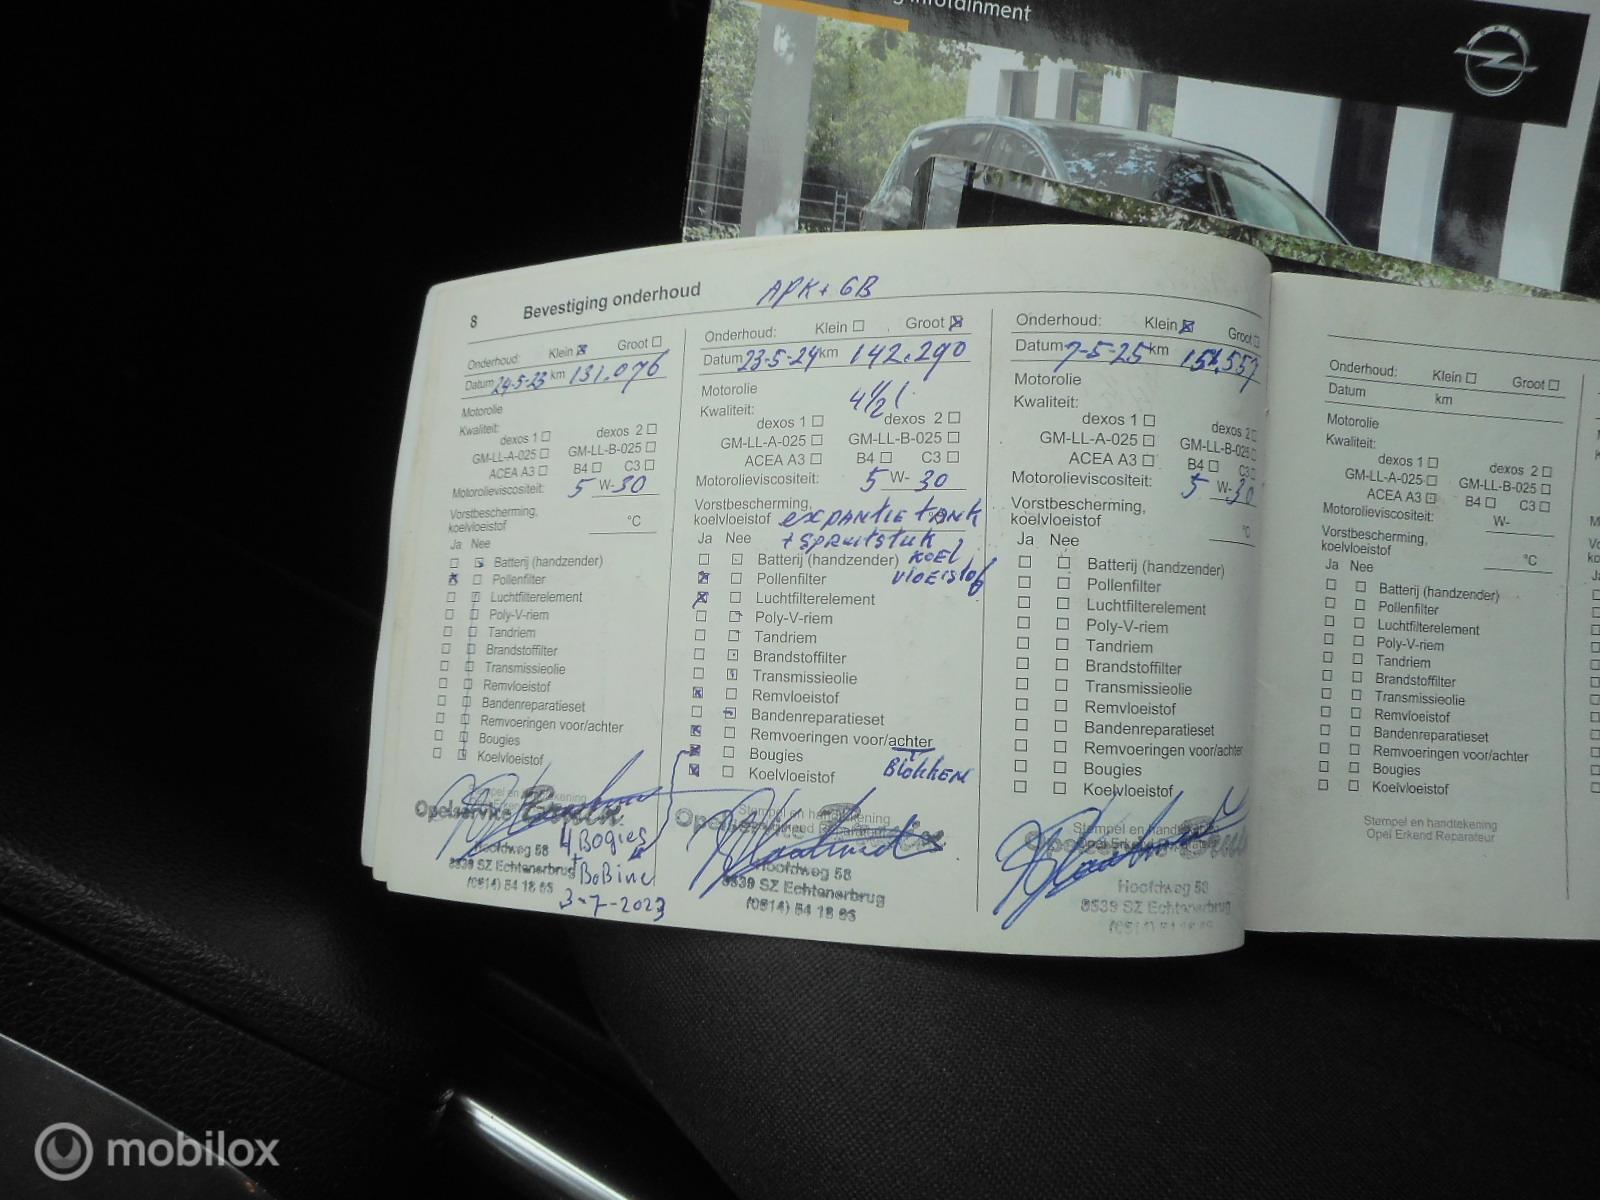 infotainment
OPEL
8 Bevestiging onderhoud APK + GB
Onderhoud: Klein Groot
Datum 24-5-23 km 131.076
Motorolie
Kwaliteit:
dexos 1 dexos 2
GM-LL-A-025 GM-LL-B-025
ACEA A3 B4 C3
Motorolieviscositeit: 5 W-30
Vorstbescherming,
koelvloeistof °C
Ja Nee
Batterij (handzender)
Pollenfilter
Luchtfilterelement
Poly-V-riem
Tandriem
Brandstoffilter
Transmissieolie
Remvloeistof
Bandenreparatieset
Remvoeringen voor/achter
Bougies
Koelvloeistof
Stempel en handtekening
Opelservice
Hoofdweg 58
8539 SZ Echtenerbrug
(0514) 54 18 65
4 Bogies
+ BoBine
3-7-2023
Onderhoud: Klein Groot
Datum 23-5-24 km 142.290
Motorolie
4 1/2 l
Kwaliteit:
dexos 1 dexos 2
GM-LL-A-025 GM-LL-B-025
ACEA A3 B4 C3
Motorolieviscositeit: 5 W- 30
Vorstbescherming,
koelvloeistof expantie tank
Ja Nee + spruitstuk
Batterij (handzender) koel
Pollenfilter vloeistof
Luchtfilterelement
Poly-V-riem
Tandriem
Brandstoffilter
Transmissieolie
Remvloeistof
Bandenreparatieset
Remvoeringen voor/achter
Bougies Blokken
Koelvloeistof
Stempel en handtekening
Opel Erkend Reparateur
Hoofdweg 58
8539 SZ Echtenerbrug
(0514) 54 18 65
Onderhoud: Klein Groot
Datum 7-5-25 km
Motorolie
Kwaliteit:
dexos 1 dexos 2
GM-LL-A-025 GM-LL-B-025
ACEA A3 B4 C3
Motorolieviscositeit: 5 W-30
Vorstbescherming,
koelvloeistof °C
Ja Nee
Batterij (handzender)
Pollenfilter
Luchtfilterelement
Poly-V-riem
Tandriem
Brandstoffilter
Transmissieolie
Remvloeistof
Bandenreparatieset
Remvoeringen voor/achter
Bougies
Koelvloeistof
Stempel en handtekening
Opel Erkend Reparateur
Hoofdweg 58
8539 SZ Echtenerbrug
(0514) 54 18 65
Onderhoud: Klein Groot
Datum km
Motorolie
Kwaliteit:
dexos 1 dexos 2
GM-LL-A-025 GM-LL-B-025
ACEA A3 B4 C3
Motorolieviscositeit: W-
Vorstbescherming,
koelvloeistof °C
Ja Nee
Batterij (handzender)
Pollenfilter
Luchtfilterelement
Poly-V-riem
Tandriem
Brandstoffilter
Transmissieolie
Remvloeistof
Bandenreparatieset
Remvoeringen voor/achter
Bougies
Koelvloeistof
Stempel en handtekening
Opel Erkend Reparateur
mobilox